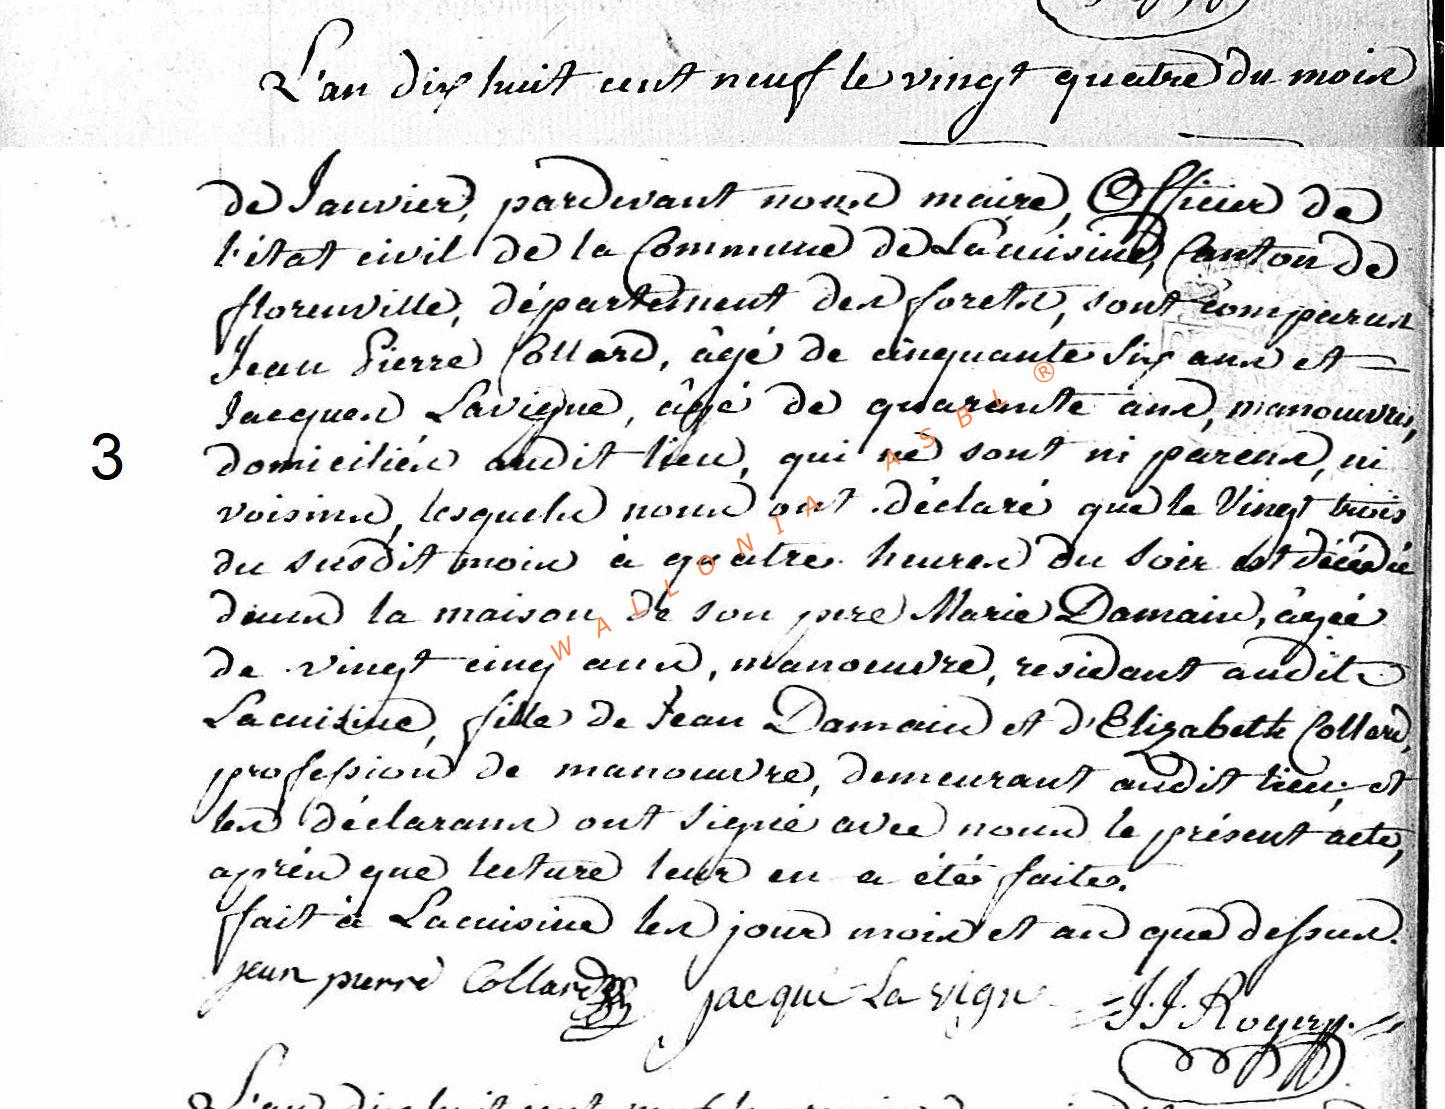 L'an dix huit cent neuf le vingt quatre du mois
de Janvier, pardevant nous maire, Officier de
l'état civil de la Commune de Lacuisine, Canton de
florenville, département des forets, sont comparus
Jean Pierre Collard, âgé de cinquante six ans et
Jacques Lavigne, âgé de quarante ans, manoeuvres,
3
domiciliés audit lieu, qui ne sont ni parens, ni
voisins, lesquels nous ont déclaré que le Vingt trois
du susdit mois à quatre heures du soir est décédé
dans la maison de son pere Marie Damain, âgée
de vingt cinq ans, manoeuvre, residant audit
Lacuisine, fille de Jean Damain et d'Elizabeth Collard,
profession de manoeuvre, demeurant audit lieu; et
les déclarans ont signé avec nous le présent acte,
après que lecture leur en a été faite.
fait à Lacuisine les jour mois et an que dessus.
jean pierre Collard jacque Lavigne J.J. Rogery.
L'an dix huit cent neuf le
WALLONIA ASBL ®